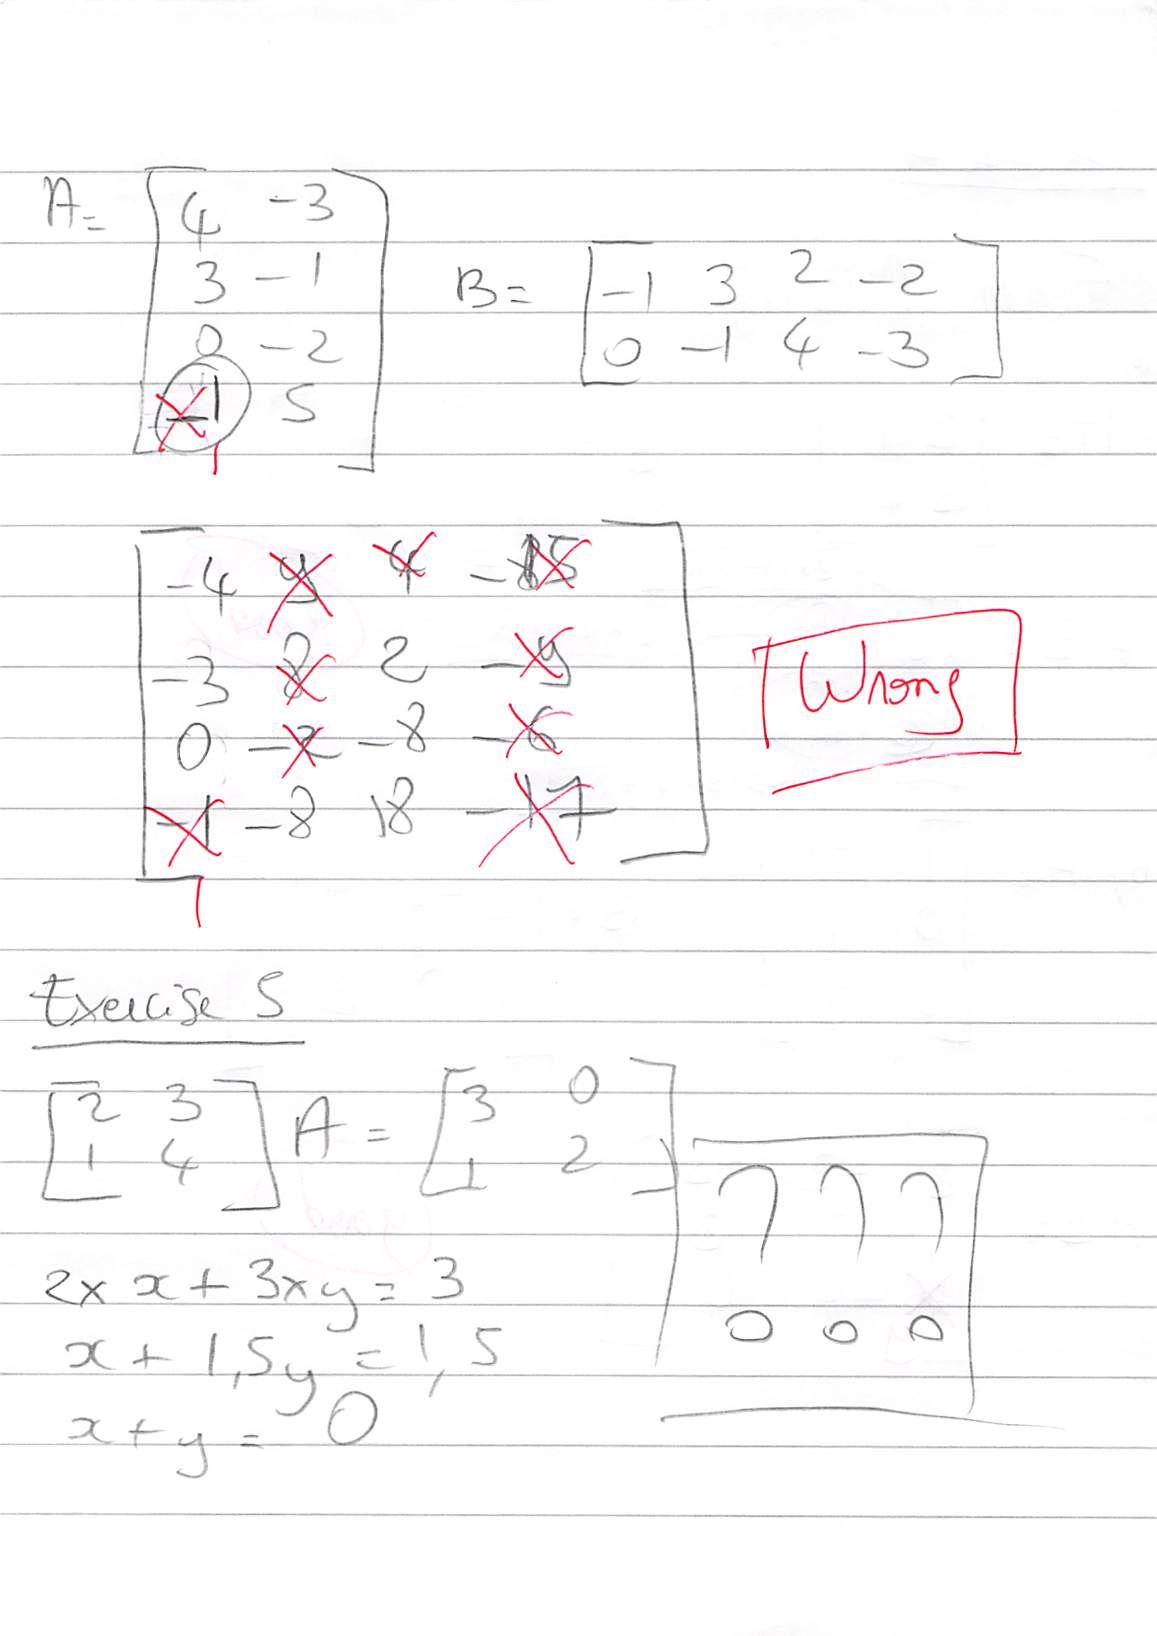 A= [4 -3
3 -1
0 -2
-1 5]
1
B= [-1 3 2 -2
0 -1 4 -3]
-4 9 4 -15
-3 8 2 -9
0 -2 -8 -6
-1 -8 18 -17
1
Wrong
Exercise 5
[2 3
1 4] A = [3 0
1 2]
? ? ?
0 0 0
2x x + 3xy = 3
x + 1,5y = 1,5
x + y = 0